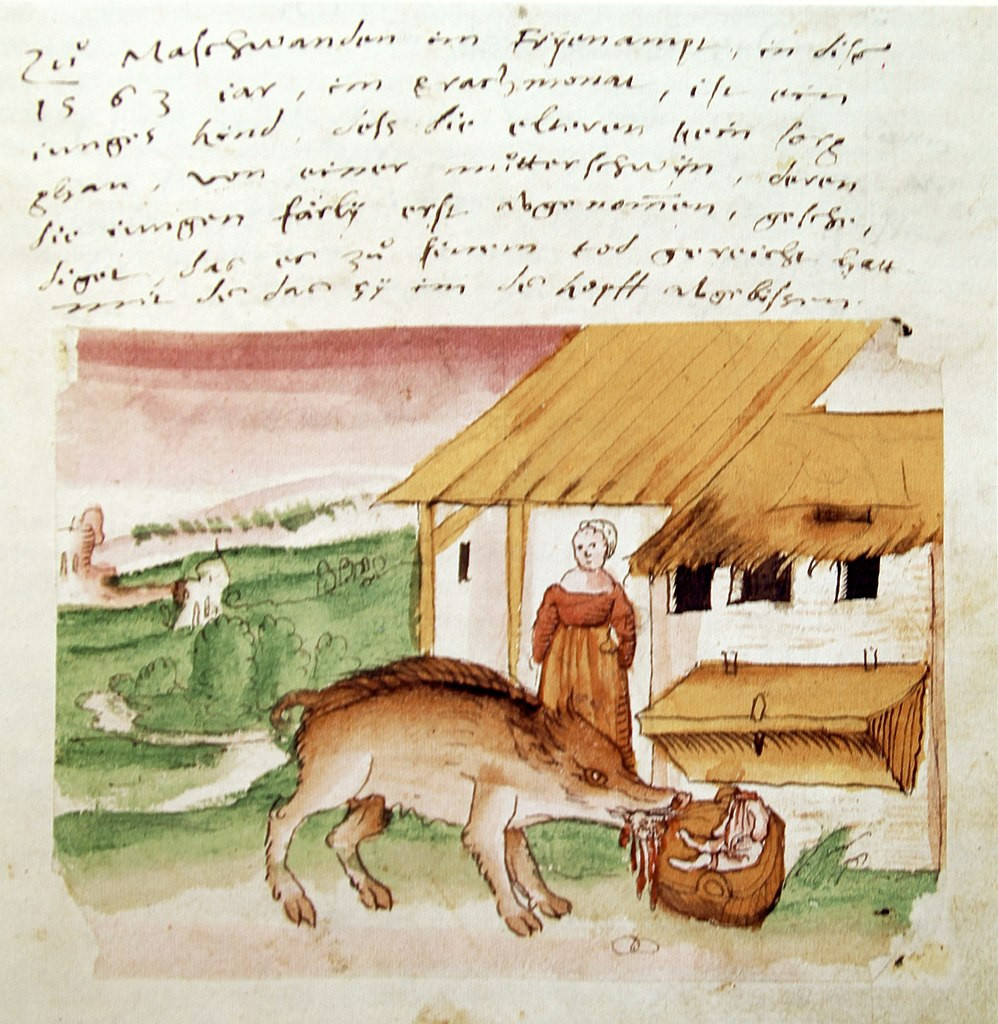 Zů Maschwanden im Fryenampt, in diss
1563 iar, im Brachmonat, ist ein
iunges kind, dess die elteren kein sorg
ghan, von einer můtterschwyn, deren
die iungen färly erst abgenom̅en, gesche,
diget, das es zů sinem tod gereicht hatt
mit de das sy im de kopff abgebissen.